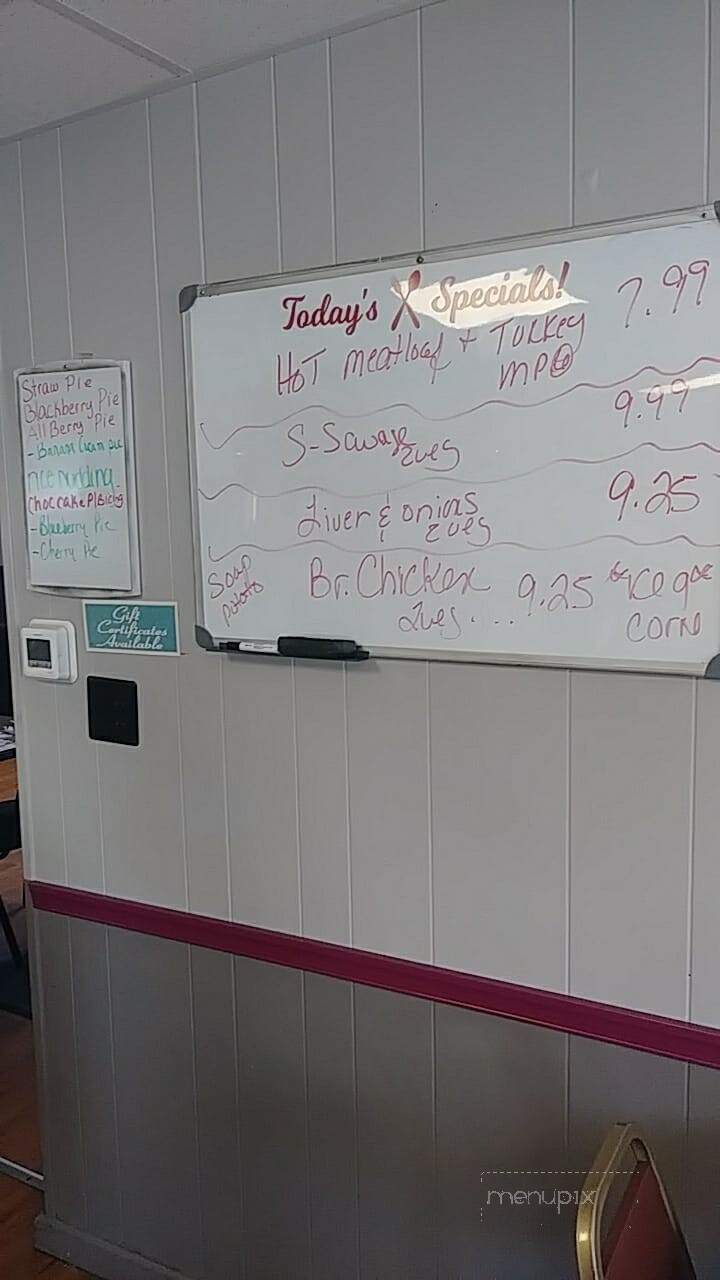 Straw Pie
Blackberry Pie
All Berry Pie
- Banana Cream pie
rice pudding
Choc cake P/B icing
- Blueberry Pie
- Cherry Pie
Gift
Certificates
Available
Today's Specials!
HOT meatloaf + Turkey 7.99
MP
S-Sausage 9.99
2veg
Liver & onions 9.25
2veg
Soup
potato
Br. Chicken 9.25
2veg....
corn
menupix